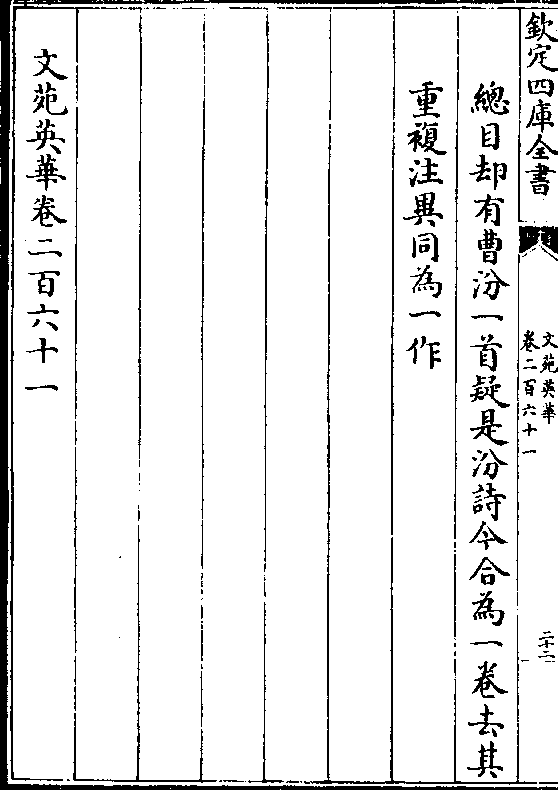 欽定四庫全書
文苑英華
卷二百六十一
二十二
總目却有曹汾一首疑是汾詩今合為一卷去其
重複注異同為一作
文苑英華卷二百六十一